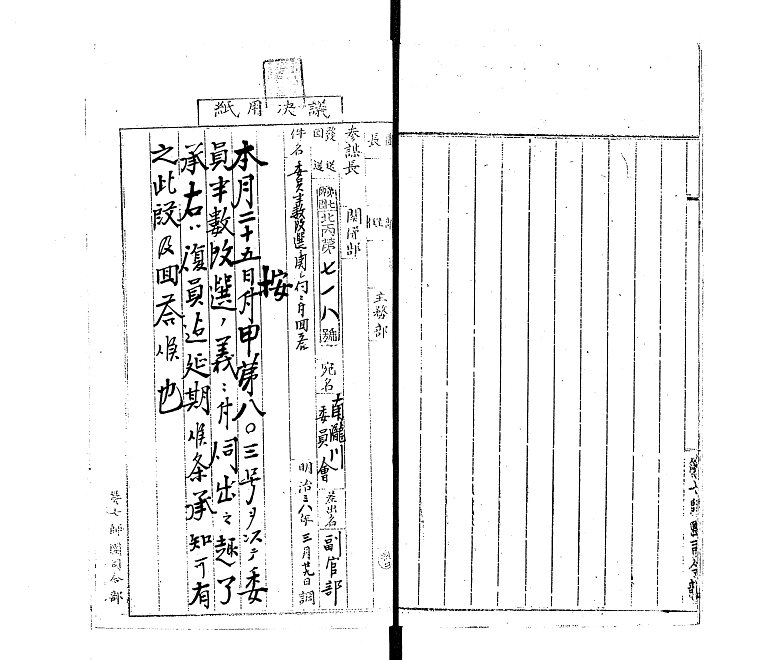 議決用紙
參謀長
關係部
主務部
發送
回送
北丙第七一八號
宛名
南瀧川委員會
差出名
副官部
件名
委員半數改選ニ關シ伺ニ付回答
明治三八年三月廿九日調
按
本月二十五日付甲第八〇三号ヲ以テ委
員半數改選ノ義ニ付伺出之趣了
承右ハ復員迄延期候条承知可有
之此段及回答候也
第七師團司令部
第七師團司令部